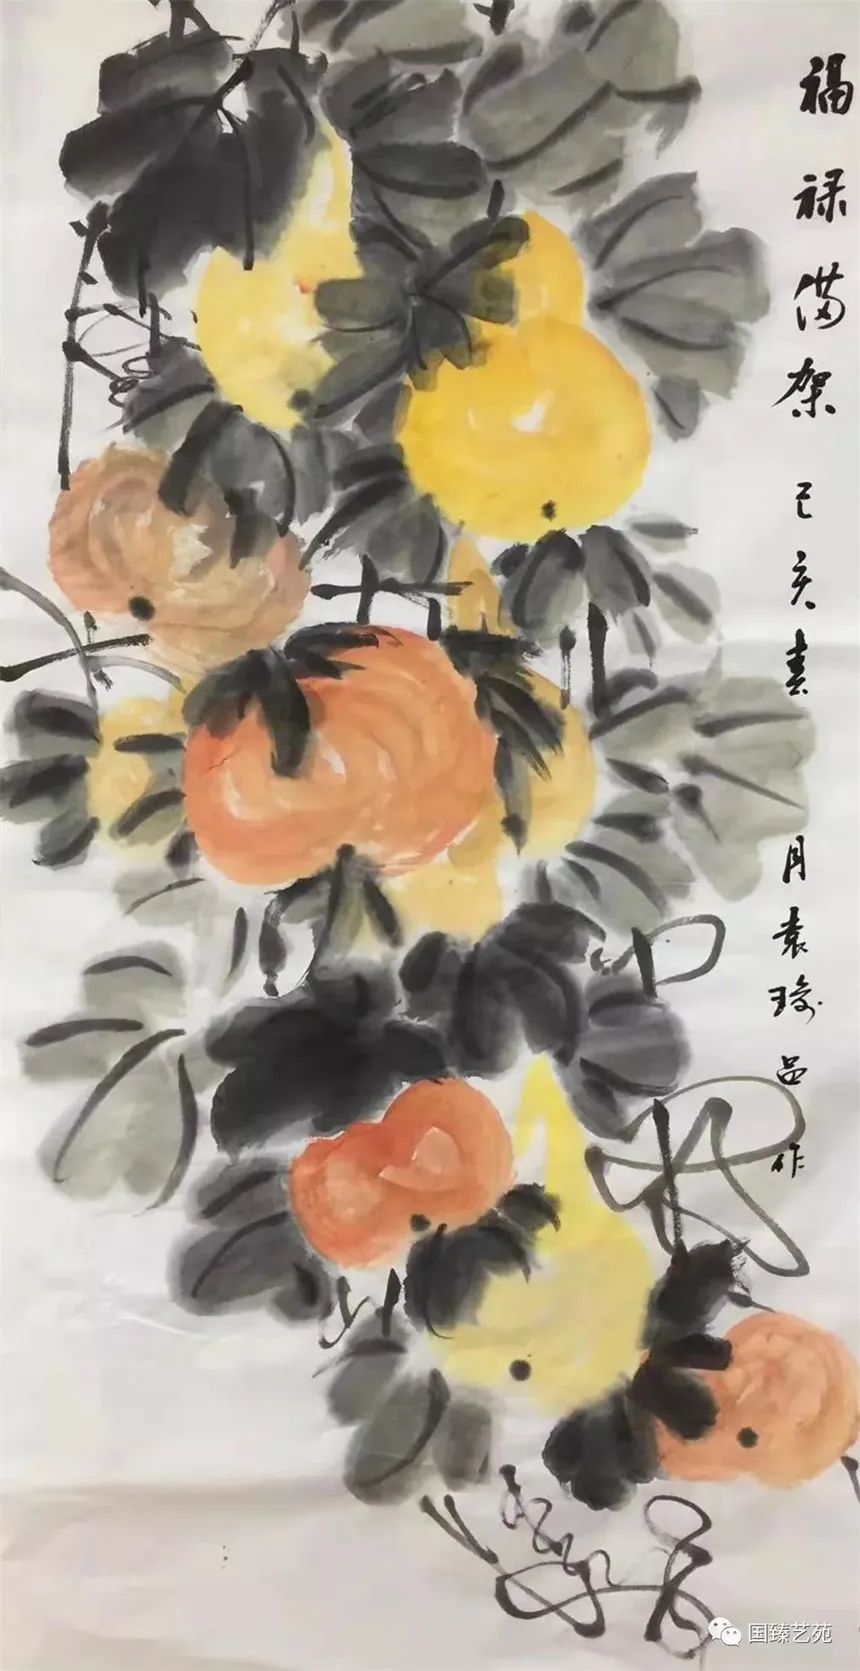 福禄满架 己亥春月袁琼品作
国臻艺苑